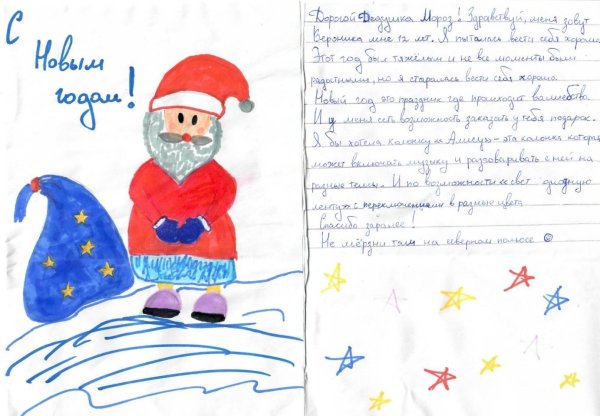 С
Новым
годом!
Дорогой Дедушка Мороз! Здравствуй, меня зовут
Вероника мне 12 лет. Я пыталась вести себя хорошо.
Этот год был тяжёлым и не все моменты были
радостными, но я старалась вести себя хорошо.
Новый год это праздник где происходит волшебство.
И у меня есть возможность заказать у тебя подарок.
Я бы хотела колонку «Алису» - эта колонка которая
может включать музыку и разговаривать с ней на
разные темы. И по возможности «свет диодную
ленту» с переключениями в разные цвета
Спасибо заранее!
Не мёрзни там на северном полюсе ☺